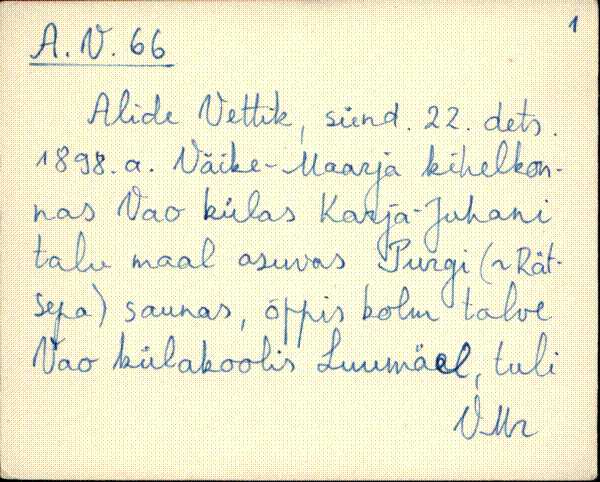 1
A. V. 66
Alide Vettik, sünd. 22. dets.
1898. a. Väike-Maarja kihelkon-
nas Vao külas Karja-Juhani
talu maal asuvas Purgi (~Rät-
sepa) saunas, õppis kolm talve
Vao külakoolis Luumäel, tuli
VMr